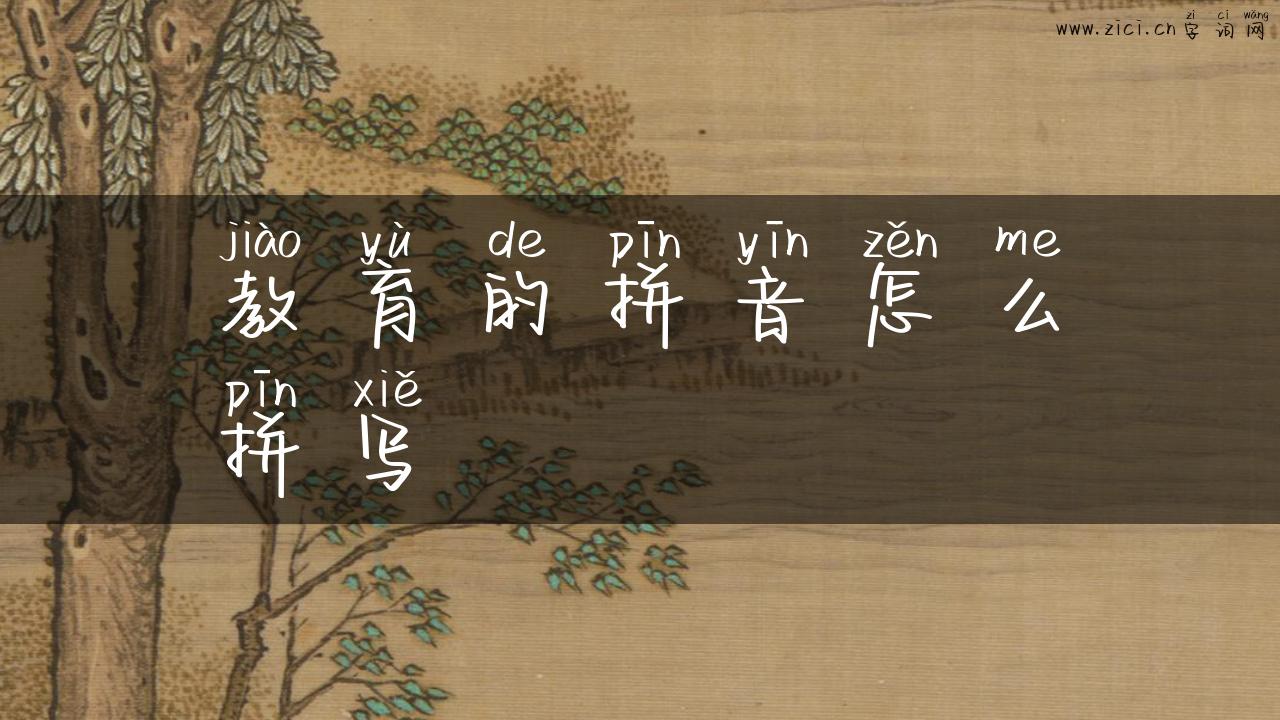 zì cí wǎng
www.zici.cn 字词网
jiào yù de pīn yīn zěn me
教育的拼音怎么
pīn xiě
拼写